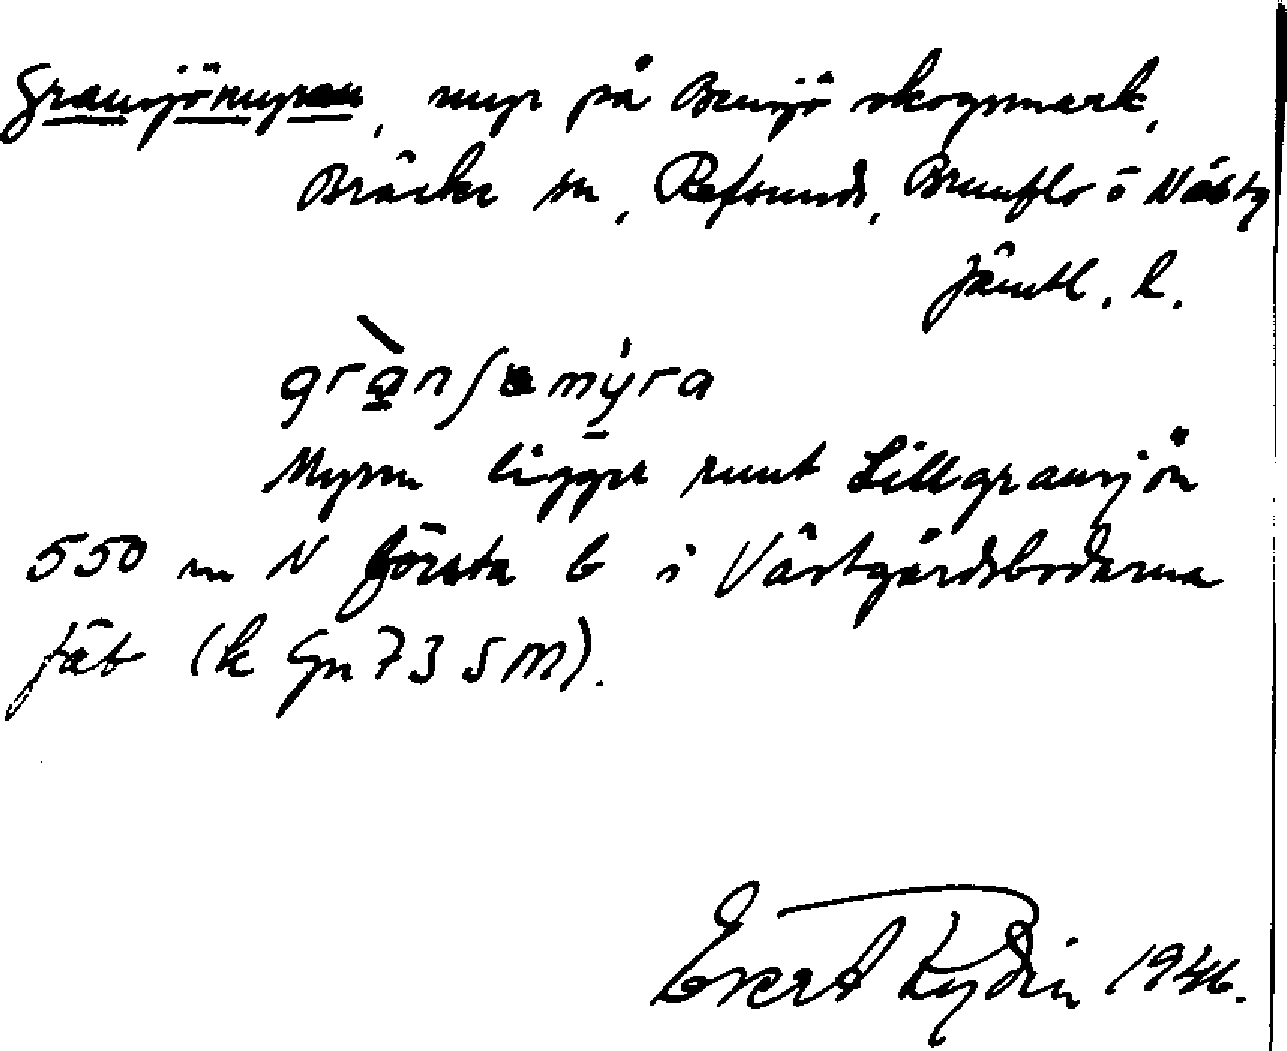 Gransjömyran, myr på Bensjö skogsmark,
Bräcke sn, Refsunds, Brunflo o Näs tg
Jämtl. l.
grànʃømýra
Myren ligger runt Lillgransjön
550 m N första b i Västgårdsbodarna
fäb (k Gn 73 5 M).
Evert Rydin 1946.